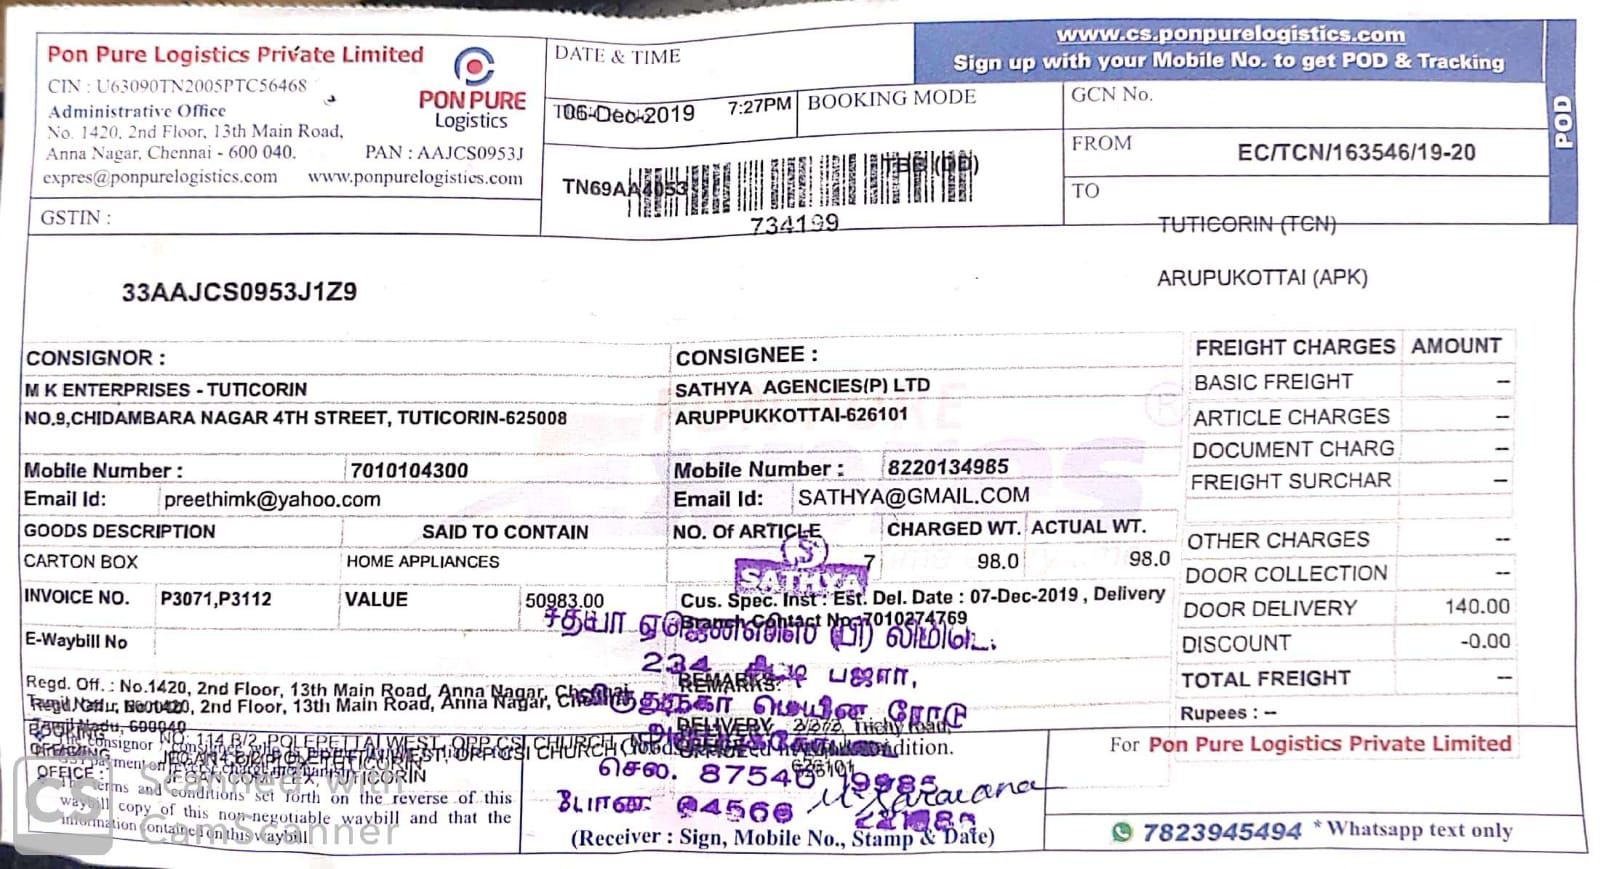 Pon Pure Logistics Private Limited
CIN : U63090TN2005PTC56468
Administrative Office
No. 1420, 2nd Floor, 13th Main Road,
Anna Nagar, Chennai - 600 040.
PAN : AAJCS0953J
expres@ponpurelogistics.com www.ponpurelogistics.com
PON PURE
Logistics
GSTIN :
33AAJCS0953J1Z9
DATE & TIME
06-Dec-2019 7:27PM
BOOKING MODE
TBB (DD)
TN69AA4053
734199
www.cs.ponpurelogistics.com
Sign up with your Mobile No. to get POD & Tracking
POD
GCN No.
FROM
EC/TCN/163546/19-20
TO
TUTICORIN (TCN)
ARUPUKOTTAI (APK)
CONSIGNOR :
M K ENTERPRISES - TUTICORIN
NO.9,CHIDAMBARA NAGAR 4TH STREET, TUTICORIN-625008
Mobile Number : 7010104300
Email Id: preethimk@yahoo.com
CONSIGNEE :
SATHYA AGENCIES(P) LTD
ARUPPUKKOTTAI-626101
Mobile Number : 8220134985
Email Id: SATHYA@GMAIL.COM
GOODS DESCRIPTION SAID TO CONTAIN NO. Of ARTICLE CHARGED WT. ACTUAL WT.
CARTON BOX HOME APPLIANCES 7 98.0 98.0
INVOICE NO. P3071,P3112 VALUE 50983.00
Cus. Spec. Inst : Est. Del. Date : 07-Dec-2019 , Delivery
Branch Contact No:7010274769
E-Waybill No
FREIGHT CHARGES AMOUNT
BASIC FREIGHT --
ARTICLE CHARGES --
DOCUMENT CHARG --
FREIGHT SURCHAR --
OTHER CHARGES --
DOOR COLLECTION --
DOOR DELIVERY 140.00
DISCOUNT -0.00
TOTAL FREIGHT --
Rupees : --
SATHYA
சத்யா ஏஜென்ஸிஸ் (பி) லிமிடெ.
234 பஜார்,
மெயின் ரோடு
செல். 87540 19985
போன்: 04566
REMARKS:
DELIVERY 2/272, Trichy Road,
626101
Regd. Off. : No.1420, 2nd Floor, 13th Main Road, Anna Nagar, Chennai
Tamil Nadu, 600040
BOOKING NO: 114 B/2, POLEPETTAI WEST, OPP CSI CHURCH
OFFICE : JEGAN COMPLEX, TUTICORIN
terms and conditions set forth on the reverse of this
waybill copy of this non-negotiable waybill and that the
information contained on this waybill
condition.
(Receiver : Sign, Mobile No., Stamp & Date)
For Pon Pure Logistics Private Limited
7823945494 *Whatsapp text only
CS
Scanned with
CamScanner